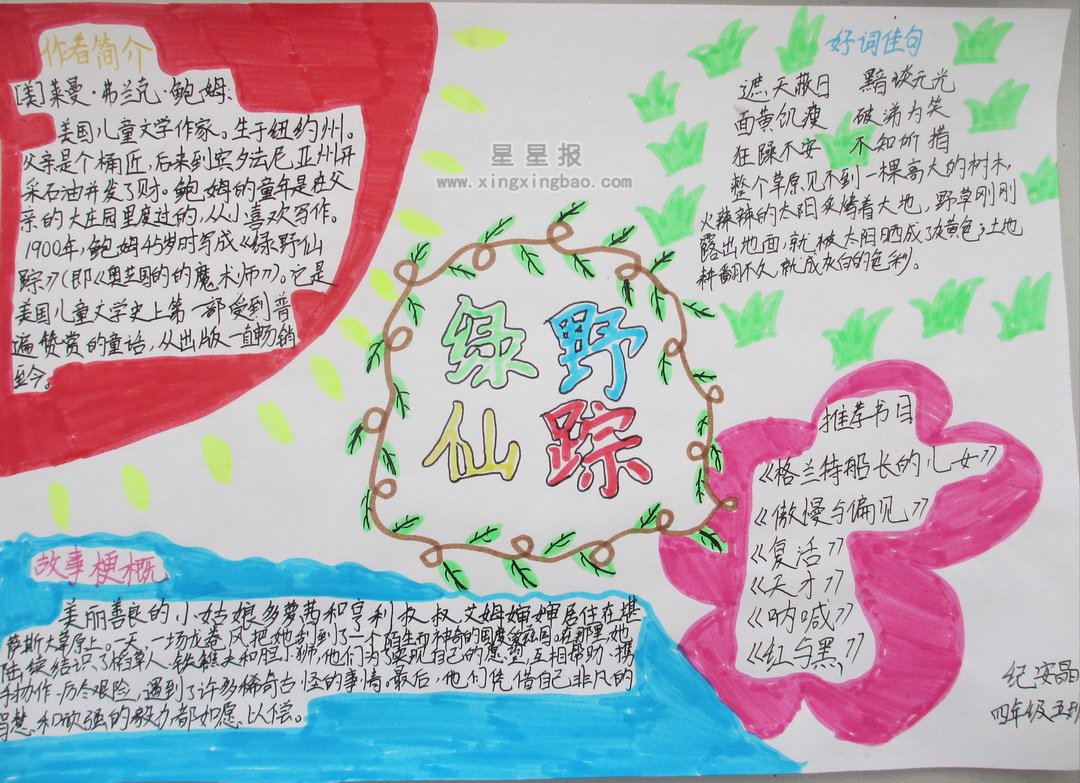 作者简介
[美]莱曼·弗兰克·鲍姆:
美国儿童文学作家。生于纽约州。
父亲是个桶匠，后来到宾夕法尼亚州开
采石油并发了财。鲍姆的童年是在父
亲的大庄园里度过的，从小喜欢写作。
1900年，鲍姆45岁时写成《绿野仙
踪》(即《奥兹国的的魔术师》)。它是
美国儿童文学史上第一部受到普
遍赞赏的童话，从出版一直畅销
至今。
星星报
www.xingxingbao.com
好词佳句
遮天蔽日 黯淡无光
面黄饥瘦 破涕为笑
狂躁不安 不知所措
整个草原见不到一棵高大的树木，
火辣辣的太阳炙烤着大地，野草刚刚
露出地面，就被太阳晒成了灰黄色；土地
耕翻不久，就成灰白的色彩。
绿野
仙踪
推荐书目
《格兰特船长的儿女》
《傲慢与偏见》
《复活》
《天才》
《呐喊》
《红与黑》
故事梗概
美丽善良的小姑娘多萝茜和亨利叔叔、艾姆婶婶居住在堪
萨斯大草原上。一天，一场龙卷风把她刮到了一个陌生而神奇的国度。在那里，她
陆续结识了稻草人、铁樵夫和胆小狮，他们为了实现自己的愿望，互相帮助、携
手协作，历尽艰险，遇到了许多稀奇古怪的事情。最后，他们凭借自己非凡的
智慧和顽强的毅力都如愿以偿。
纪安晶
四年级五班